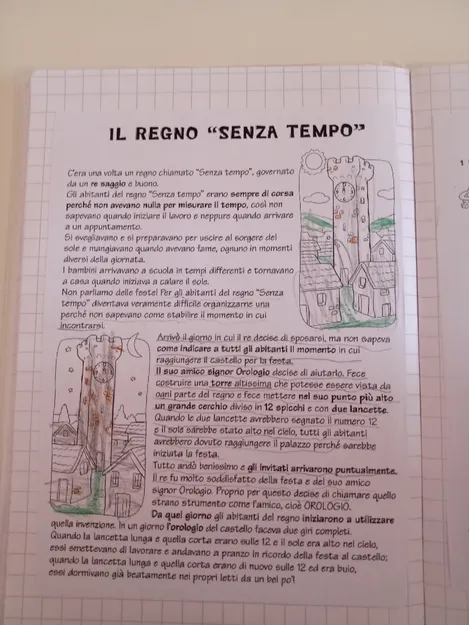 IL REGNO "SENZA TEMPO"
C'era una volta un regno chiamato "Senza tempo", governato
da un re saggio e buono.
Gli abitanti del regno "Senza tempo" erano sempre di corsa
perché non avevano nulla per misurare il tempo, così non
sapevano quando iniziare il lavoro e neppure quando arrivare
a un appuntamento.
Si svegliavano e si preparavano per uscire al sorgere del
sole e mangiavano quando avevano fame, ognuno in momenti
diversi della giornata.
I bambini arrivavano a scuola in tempi differenti e tornavano
a casa quando iniziava a calare il sole.
Non parliamo delle feste! Per gli abitanti del regno "Senza
tempo" diventava veramente difficile organizzarne una
perché non sapevano come stabilire il momento in cui
incontrarsi.
Arrivò il giorno in cui il re decise di sposarsi, ma non sapeva
come indicare a tutti gli abitanti il momento in cui
raggiungere il castello per la festa.
Il suo amico signor Orologio decise di aiutarlo. Fece
costruire una torre altissima che potesse essere vista da
ogni parte del regno e fece mettere nel suo punto più alto
un grande cerchio diviso in 12 spicchi e con due lancette.
Quando le due lancette avrebbero segnato il numero 12
e il sole sarebbe stato alto nel cielo, tutti gli abitanti
avrebbero dovuto raggiungere il palazzo perché sarebbe
iniziata la festa.
Tutto andò benissimo e gli invitati arrivarono puntualmente.
Il re fu molto soddisfatto della festa e del suo amico
signor Orologio. Proprio per questo decise di chiamare quello
strano strumento come l'amico, cioè OROLOGIO.
Da quel giorno gli abitanti del regno iniziarono a utilizzare
quella invenzione. In un giorno l'orologio del castello faceva due giri completi.
Quando la lancetta lunga e quella corta erano sulle 12 e il sole era alto nel cielo,
essi smettevano di lavorare e andavano a pranzo in ricordo della festa al castello;
quando la lancetta lunga e quella corta erano di nuovo sulle 12 ed era buio,
essi dormivano già beatamente nei propri letti da un bel po'!